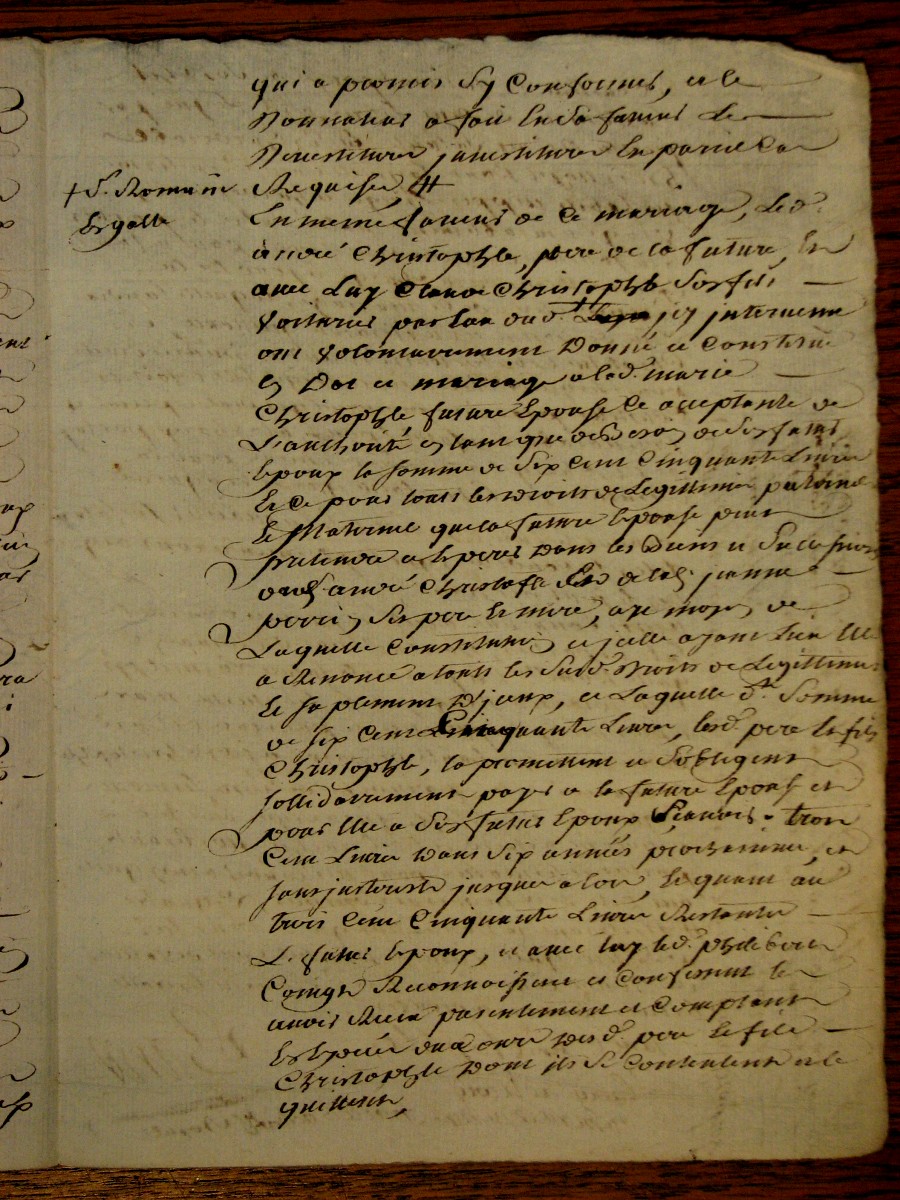 qui a promis s'y Conformer, et le
Donnataire a fait En sa faveur Les
Devestitures jnvestitures En pareil Cas
Requises #
+ St. Romain
En meme faveur de Ce mariage, Led.
andré Christophle, pere de la future, Et
avec Luy Claude Christophle Son fils
Voiturier par Eau dud. jcy jntervenu
ont Volontairement Donné et Constitué
En Dot et mariage a lad. marie
Christophle future Epouse Ce acceptante de
L'authorité En tant que de Besoin de Son futur
Epoux la somme de Six Cent Cinquante Livres
Et Ce pour touts les droits de Legittime paternel
Et Maternel que la future Epouse peut
pretendre a Esperer dans les Biens et Successions
dud. andré Christofle Et de lad. jeanne
perrin Ses pere Et mere, au moyen de
Laquelle Constitution et jcelle ayant lieu Elle
a Renoncé a touts les Susd. droits de Legittime
Et Suplement D'jceux, et Laquelle de. Somme
de Six Cent Cinquante Livres, lesd. pere Et fils
Christophle, la promettent et S'obligent
sollidairement payer a la future Epouse et
pour Elle a Son futur Epoux Scavoir trois
Cent Livres Dans Six années prochaines, et
sans jnterest jusques a lors, Et quant aux
trois Cent Cinquante Livres Restantes
Le futur Epoux, et avec luy led. philibert
Reconnoissent et Confessent les
avoir Receu presentement et Comptant
En Especes au Cours Desd. pere Et fils
Christophle Dont ils Se Contentent et les
quittent,